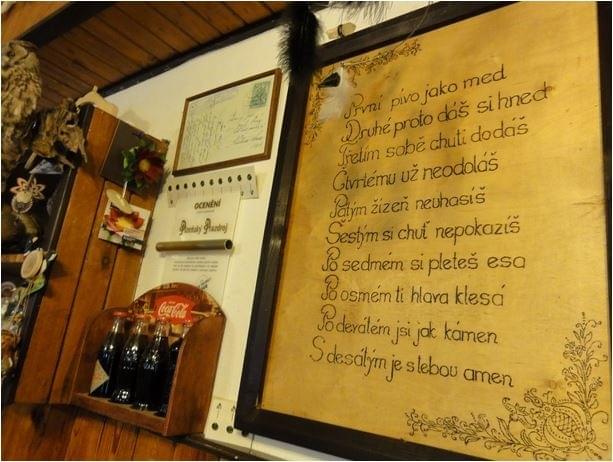 První pivo jako med
Druhé proto dáš si hned
Třetím sobě chuti dodáš
Čtvrtému už neodoláš
Pátým žízeň neuhasíš
Šestým si chuť nepokazíš
Po sedmém si pleteš esa
Po osmém ti hlava klesá
Po devátém jsi jak kámen
S desátým je s tebou amen
OCENĚNÍ
Plzeňský Prazdroj
Coca-Cola